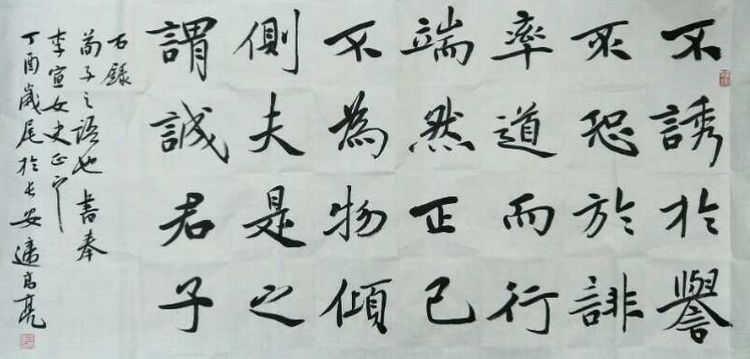 不誘於譽
不恐於誹
率道而行
端然正己
不為物傾
側夫是之
謂誠君子
右錄
荀子之語也書奉
李宣女史正之
丁酉歲尾於長安